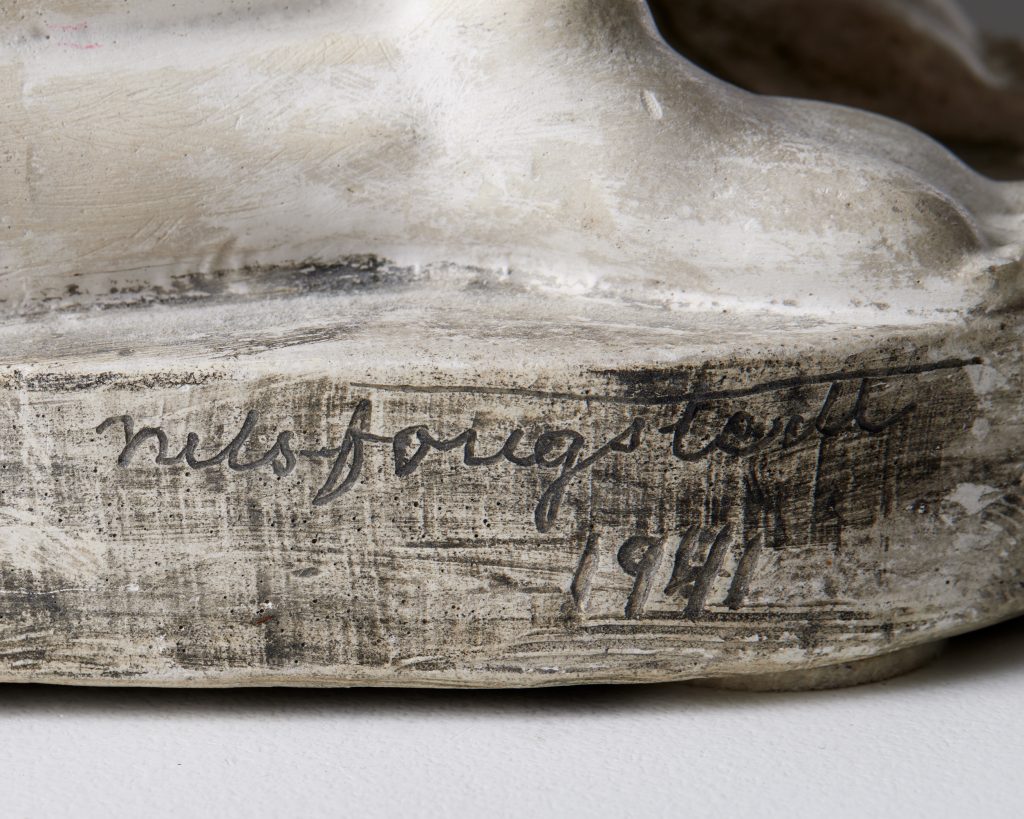 nils fougstedt
1941